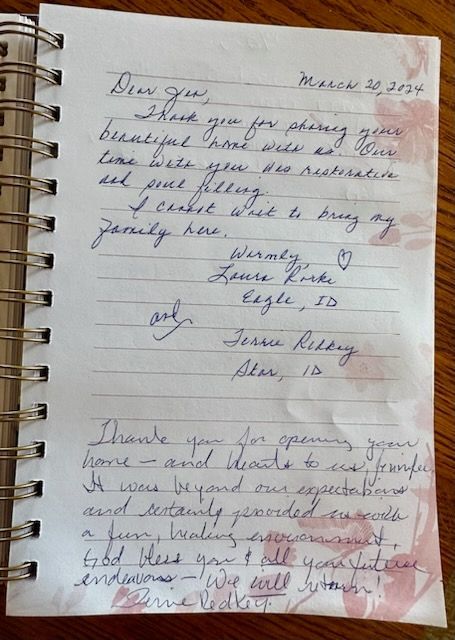 March 20, 2024
Dear Jen,
Thank you for sharing your
beautiful home with us. Our
time with you was restorative
and soul filling.
I cannot wait to bring my
family here.
Warmly, ♡
Laura Rorke
Eagle, ID
and
Terrie Redkey
Star, ID
Thank you for opening your
home – and hearts to us, Jennifer.
It was beyond our expectations
and certainly provided us with
a fun, healing environment.
God bless you & all your future
endeavors – We will return!
Terrie Redkey